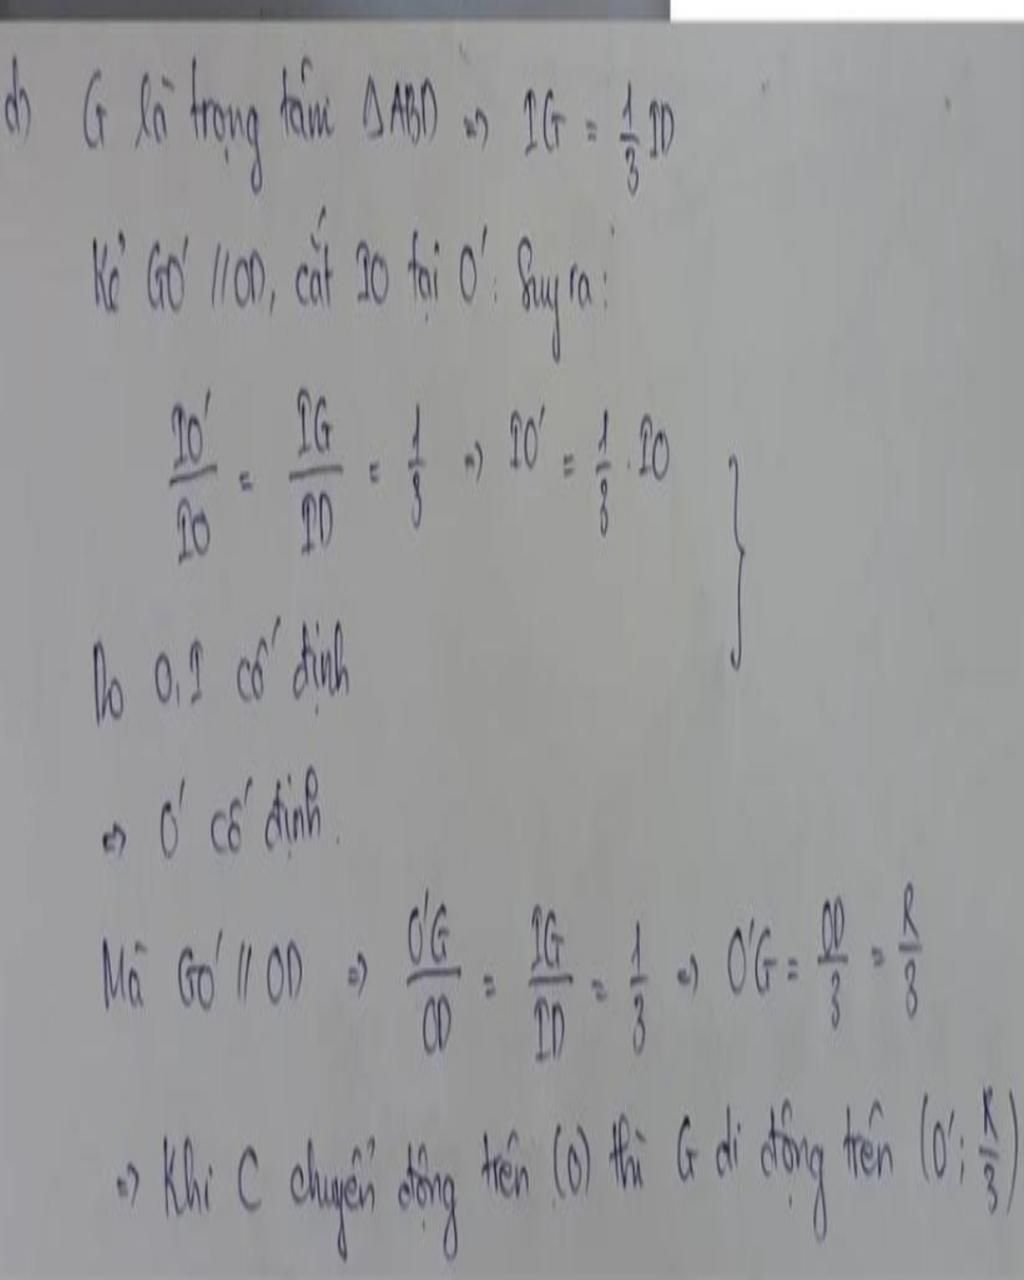 d) G là trọng tâm ΔABD => IG = 1/3 ID
Kẻ GO' // OD, cắt IO tại O'. Suy ra:
IO'/IO = IG/ID = 1/3 => IO' = 1/3 . IO }
Do O, I cố định
=> O' cố định.
Mà GO' // OD => O'G/OD = IG/ID = 1/3 => O'G = OD/3 = R/3
=> Khi C chuyển động trên (O) thì G di động trên (O'; R/3)